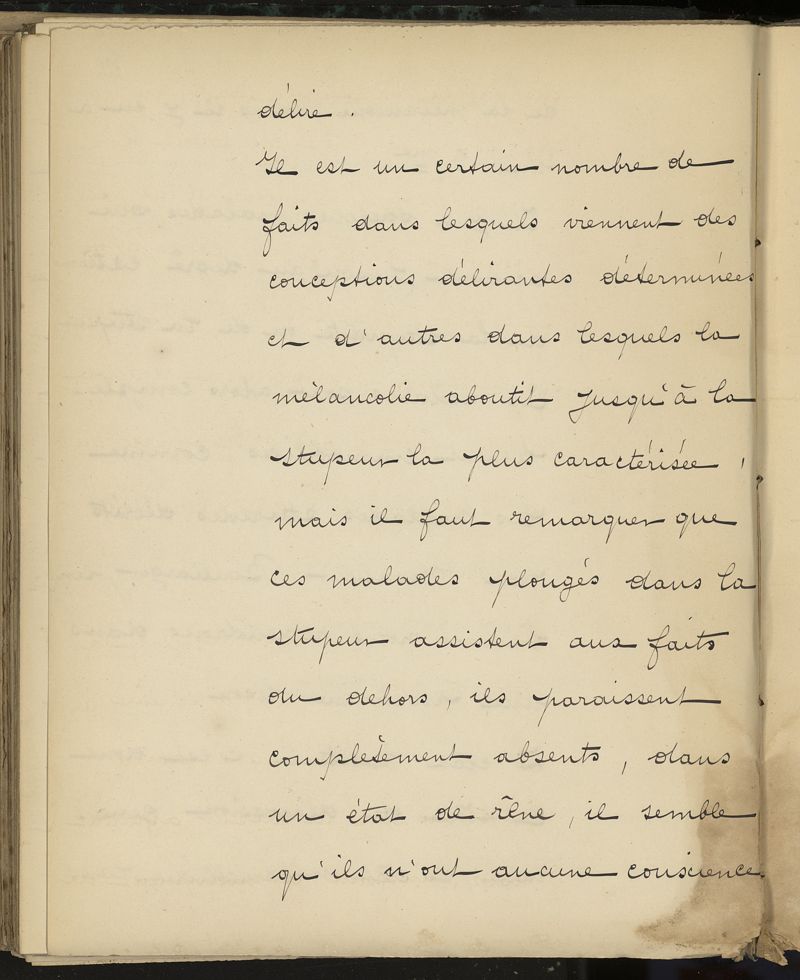 délire.
Il est un certain nombre de
faits dans lesquels viennent des
conceptions délirantes déterminées
et d'autres dans lesquels la
mélancolie aboutit jusqu'à la
stupeur la plus caractérisée,
mais il faut remarquer que
ces malades plongés dans la
stupeur assistent aux faits
du dehors, ils paraissent
complètement absents, dans
un état de rêve, il semble
qu'ils n'ont aucune conscience